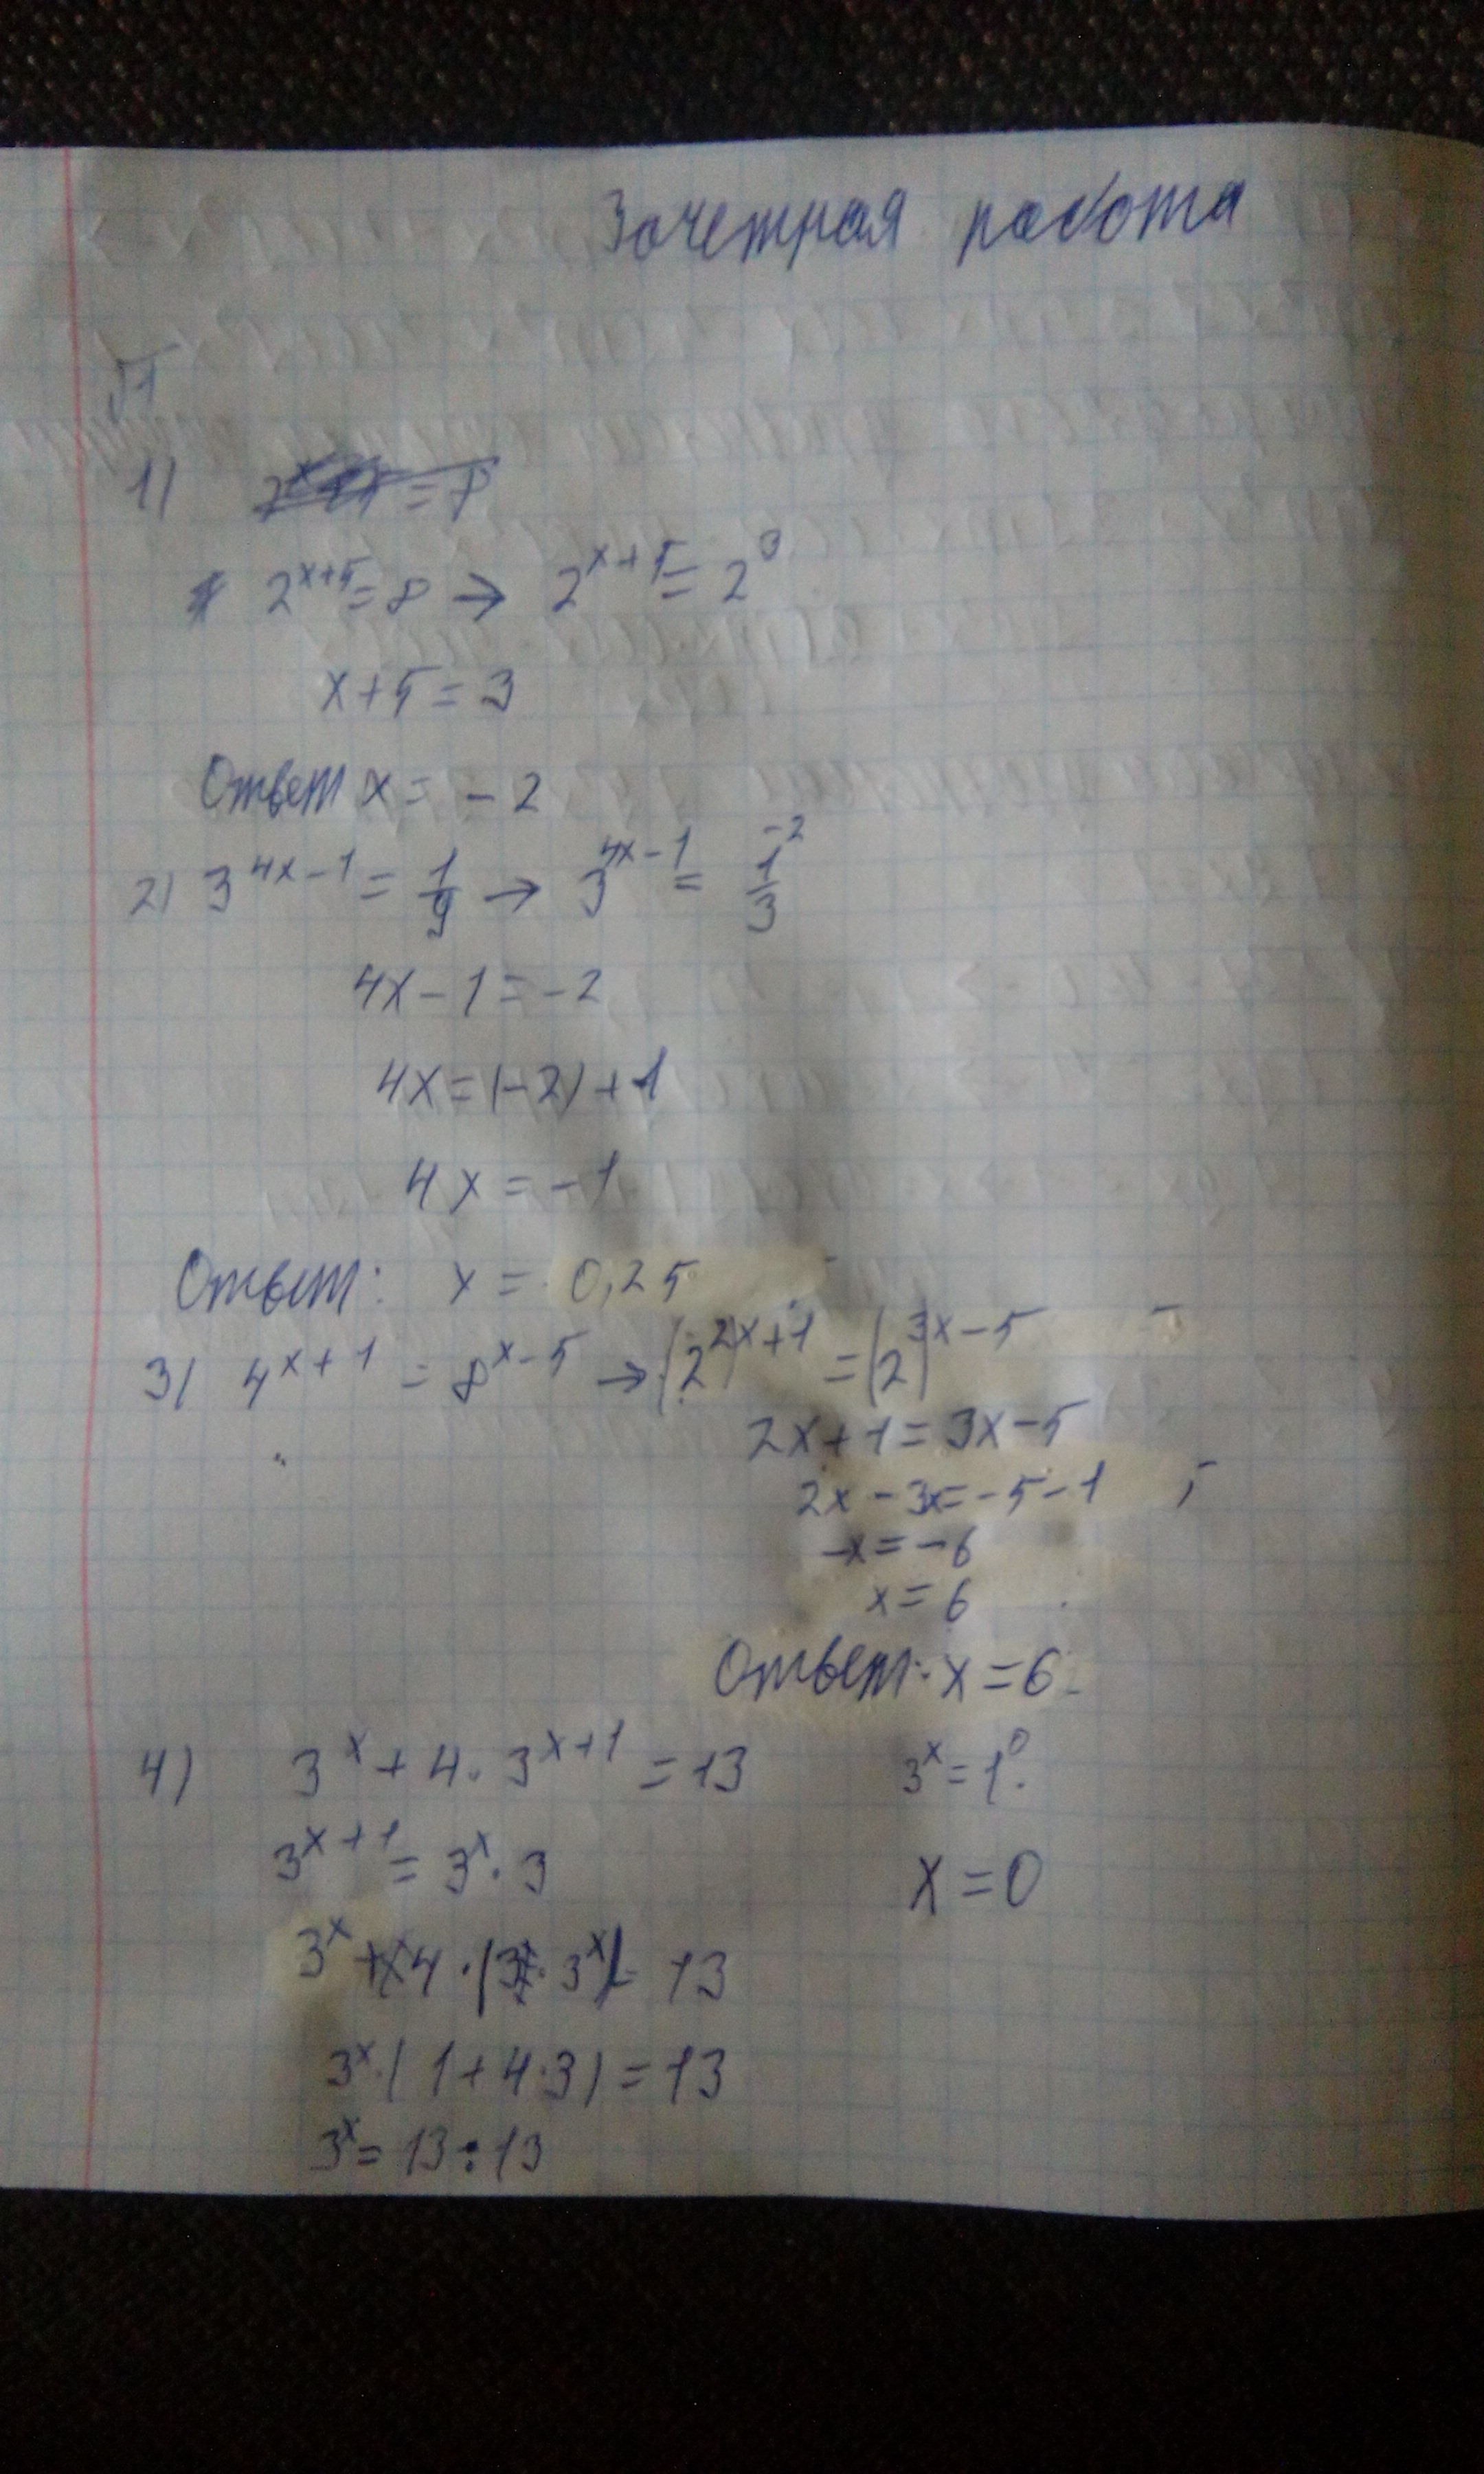 Зачетная работа
√1
1)
2^{x+5} = 8 → 2^{x+5} = 2^3
x+5 = 3
Ответ x = -2
2) 3^{4x-1} = 1/9 → 3^{4x-1} = 1/3^{-2}
4x-1 = -2
4x = (-2)+1
4x = -1
Ответ: x = - 0,25
3) 4^{x+1} = 8^{x-5} → (2)^{2x+1} = (2)^{3x-5}
2x+1 = 3x-5
2x-3x = -5-1
-x = -6
x = 6
Ответ: x = 6
4) 3^x + 4 · 3^{x+1} = 13
3^{x+1} = 3^x · 3
3^x + 4 · (3 · 3^x) = 13
3^x · (1+4·3) = 13
3^x = 13 : 13
3^x = 1^0.
x = 0